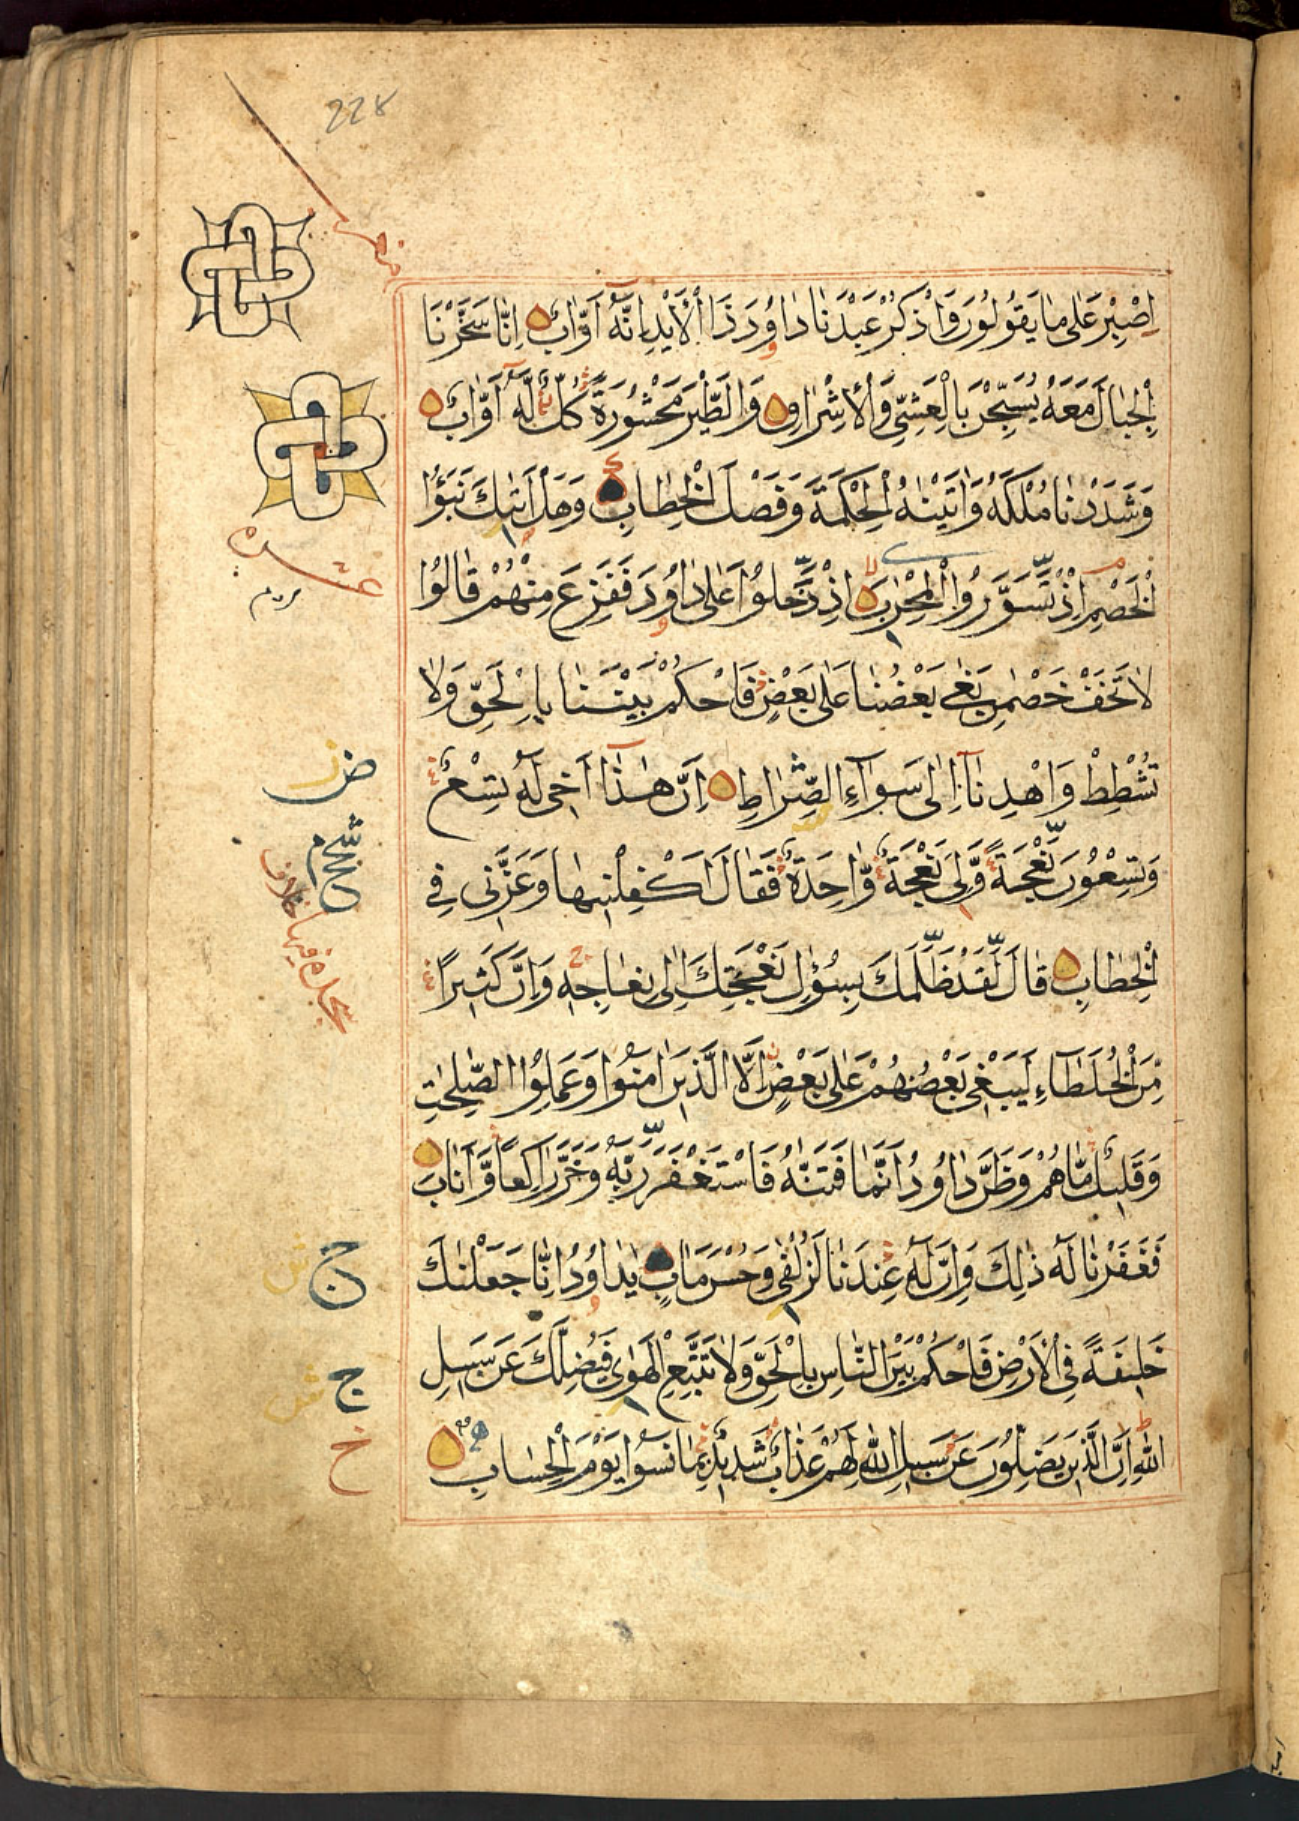 228
اِصْبِرْ عَلٰى مَا يَقُولُونَ وَاذْكُرْ عَبْدَنَا دَاوُدَ ذَا الْاَيْدِ اِنَّهٓ اَوَّابٌ اِنَّا سَخَّرْنَا
الْجِبَالَ مَعَهُ يُسَبِّحْنَ بِالْعَشِيِّ وَالْاِشْرَاقِ وَالطَّيْرَ مَحْشُورَةً كُلٌّ لَهٓ اَوَّابٌ
وَشَدَدْنَا مُلْكَهُ وَاٰتَيْنٰهُ الْحِكْمَةَ وَفَصْلَ الْخِطَابِ وَهَلْ اَتٰىكَ نَبَؤُا
الْخَصْمِ اِذْ تَسَوَّرُوا الْمِحْرَابَ اِذْ دَّخَلُوا عَلٰى دَاوُدَ فَفَزِعَ مِنْهُمْ قَالُوا
لَا تَخَفْ خَصْمٰنِ بَغٰى بَعْضُنَا عَلٰى بَعْضٍ فَاحْكُمْ بَيْنَنَا بِالْحَقِّ وَلَا
تُشْطِطْ وَاهْدِنَآ اِلٰى سَوَآءِ الصِّرَاطِ اِنَّ هٰذَا اَخِى لَهُ تِسْعٌ
وَتِسْعُونَ نَعْجَةً وَّلِىَ نَعْجَةٌ وَّاحِدَةٌ فَقَالَ اَكْفِلْنِيهَا وَعَزَّنِى فِى
الْخِطَابِ قَالَ لَقَدْ ظَّلَمَكَ بِسُؤَالِ نَعْجَتِكَ اِلٰى نِعَاجِهِ وَاِنَّ كَثِيرًا
مِّنَ الْخُلَطَآءِ لَيَبْغِى بَعْضُهُمْ عَلٰى بَعْضٍ اِلَّا الَّذِينَ اٰمَنُوا وَعَمِلُوا الصّٰلِحٰتِ
وَقَلِيلٌ مَّا هُمْ وَظَنَّ دَاوُدُ اَنَّمَا فَتَنّٰهُ فَاسْتَغْفَرَ رَّبَّهُ وَخَرَّ رَاكِعًا وَّاَنَابَ
فَغَفَرْنَا لَهُ ذٰلِكَ وَاِنَّ لَهُ عِنْدَنَا لَزُلْفٰى وَحُسْنَ مَاٰبٍ يٰدَاوُدُ اِنَّا جَعَلْنٰكَ
خَلِيفَةً فِى الْاَرْضِ فَاحْكُمْ بَيْنَ النَّاسِ بِالْحَقِّ وَلَا تَتَّبِعِ الْهَوٰى فَيُضِلَّكَ عَنْ سَبِيلِ
اللّٰهِ اِنَّ الَّذِينَ يَضِلُّونَ عَنْ سَبِيلِ اللّٰهِ لَهُمْ عَذَابٌ شَدِيدٌ بِمَا نَسُوا يَوْمَ الْحِسَابِ